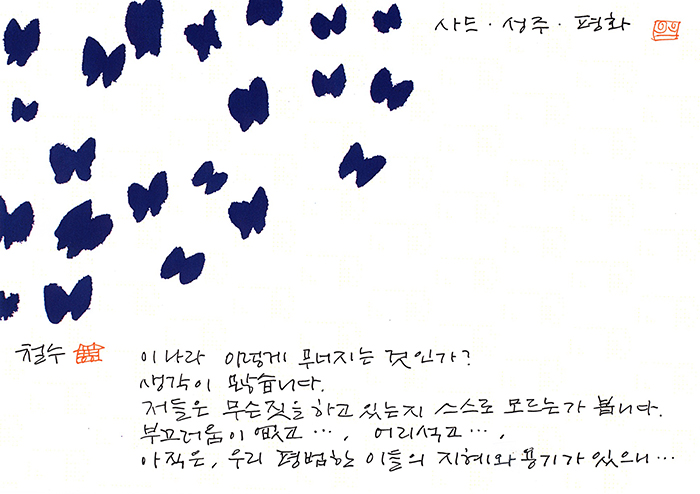 사드 · 성주 · 평화
철수
이나라 이렇게 무너지는 것인가?
생각이 많습니다.
저들은 무슨짓을 하고 있는지 스스로 모르는가 봅니다.
부끄러움이 없고 …, 어리석고 …,
아직은, 우리 평범한 이들의 지혜와 용기가 있으니 …